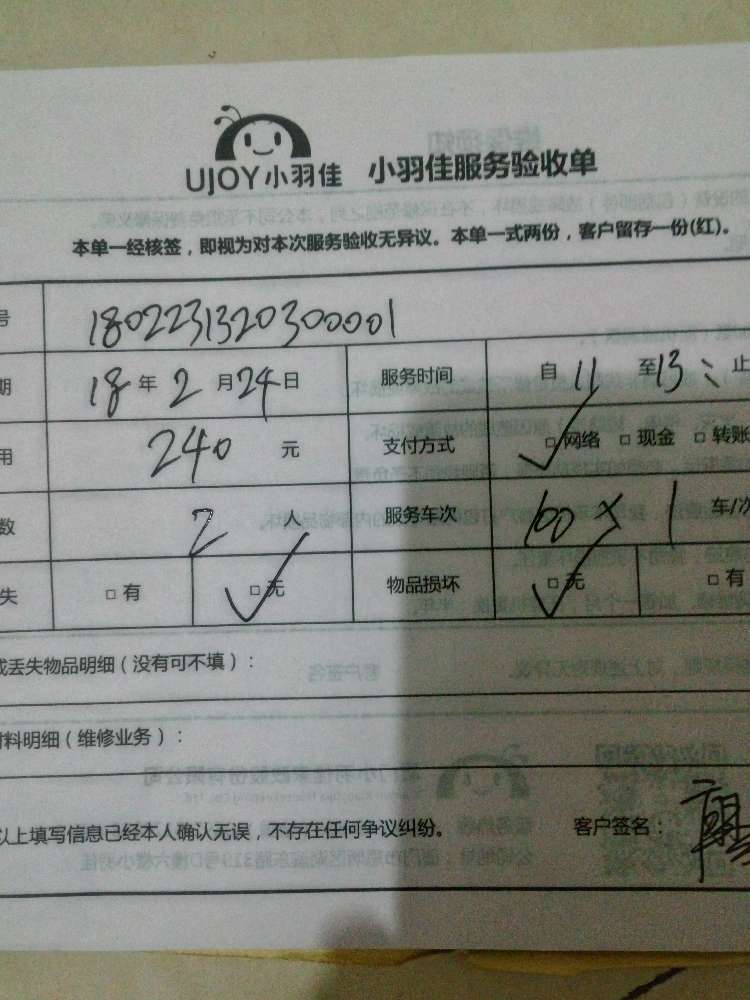 UJOY小羽佳 小羽佳服务验收单
本单一经核签，即视为对本次服务验收无异议。本单一式两份，客户留存一份(红)。
号 180223132030001
期 18 年 2 月 24 日 服务时间 自 11 至 13 止
用 240 元 支付方式 □ 网络 □ 现金 □ 转账
数 2 人 服务车次 100 × 1 车/次
失 □ 有 □ 无 物品损坏 □ 无 □ 有
或丢失物品明细（没有可不填）：
材料明细（维修业务）：
以上填写信息已经本人确认无误，不存在任何争议纠纷。 客户签名：